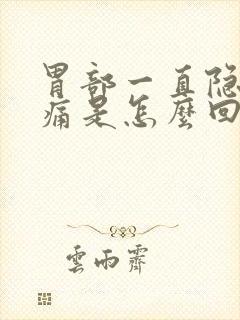 胃部一直隐
痛是怎麼回
雲雨霽